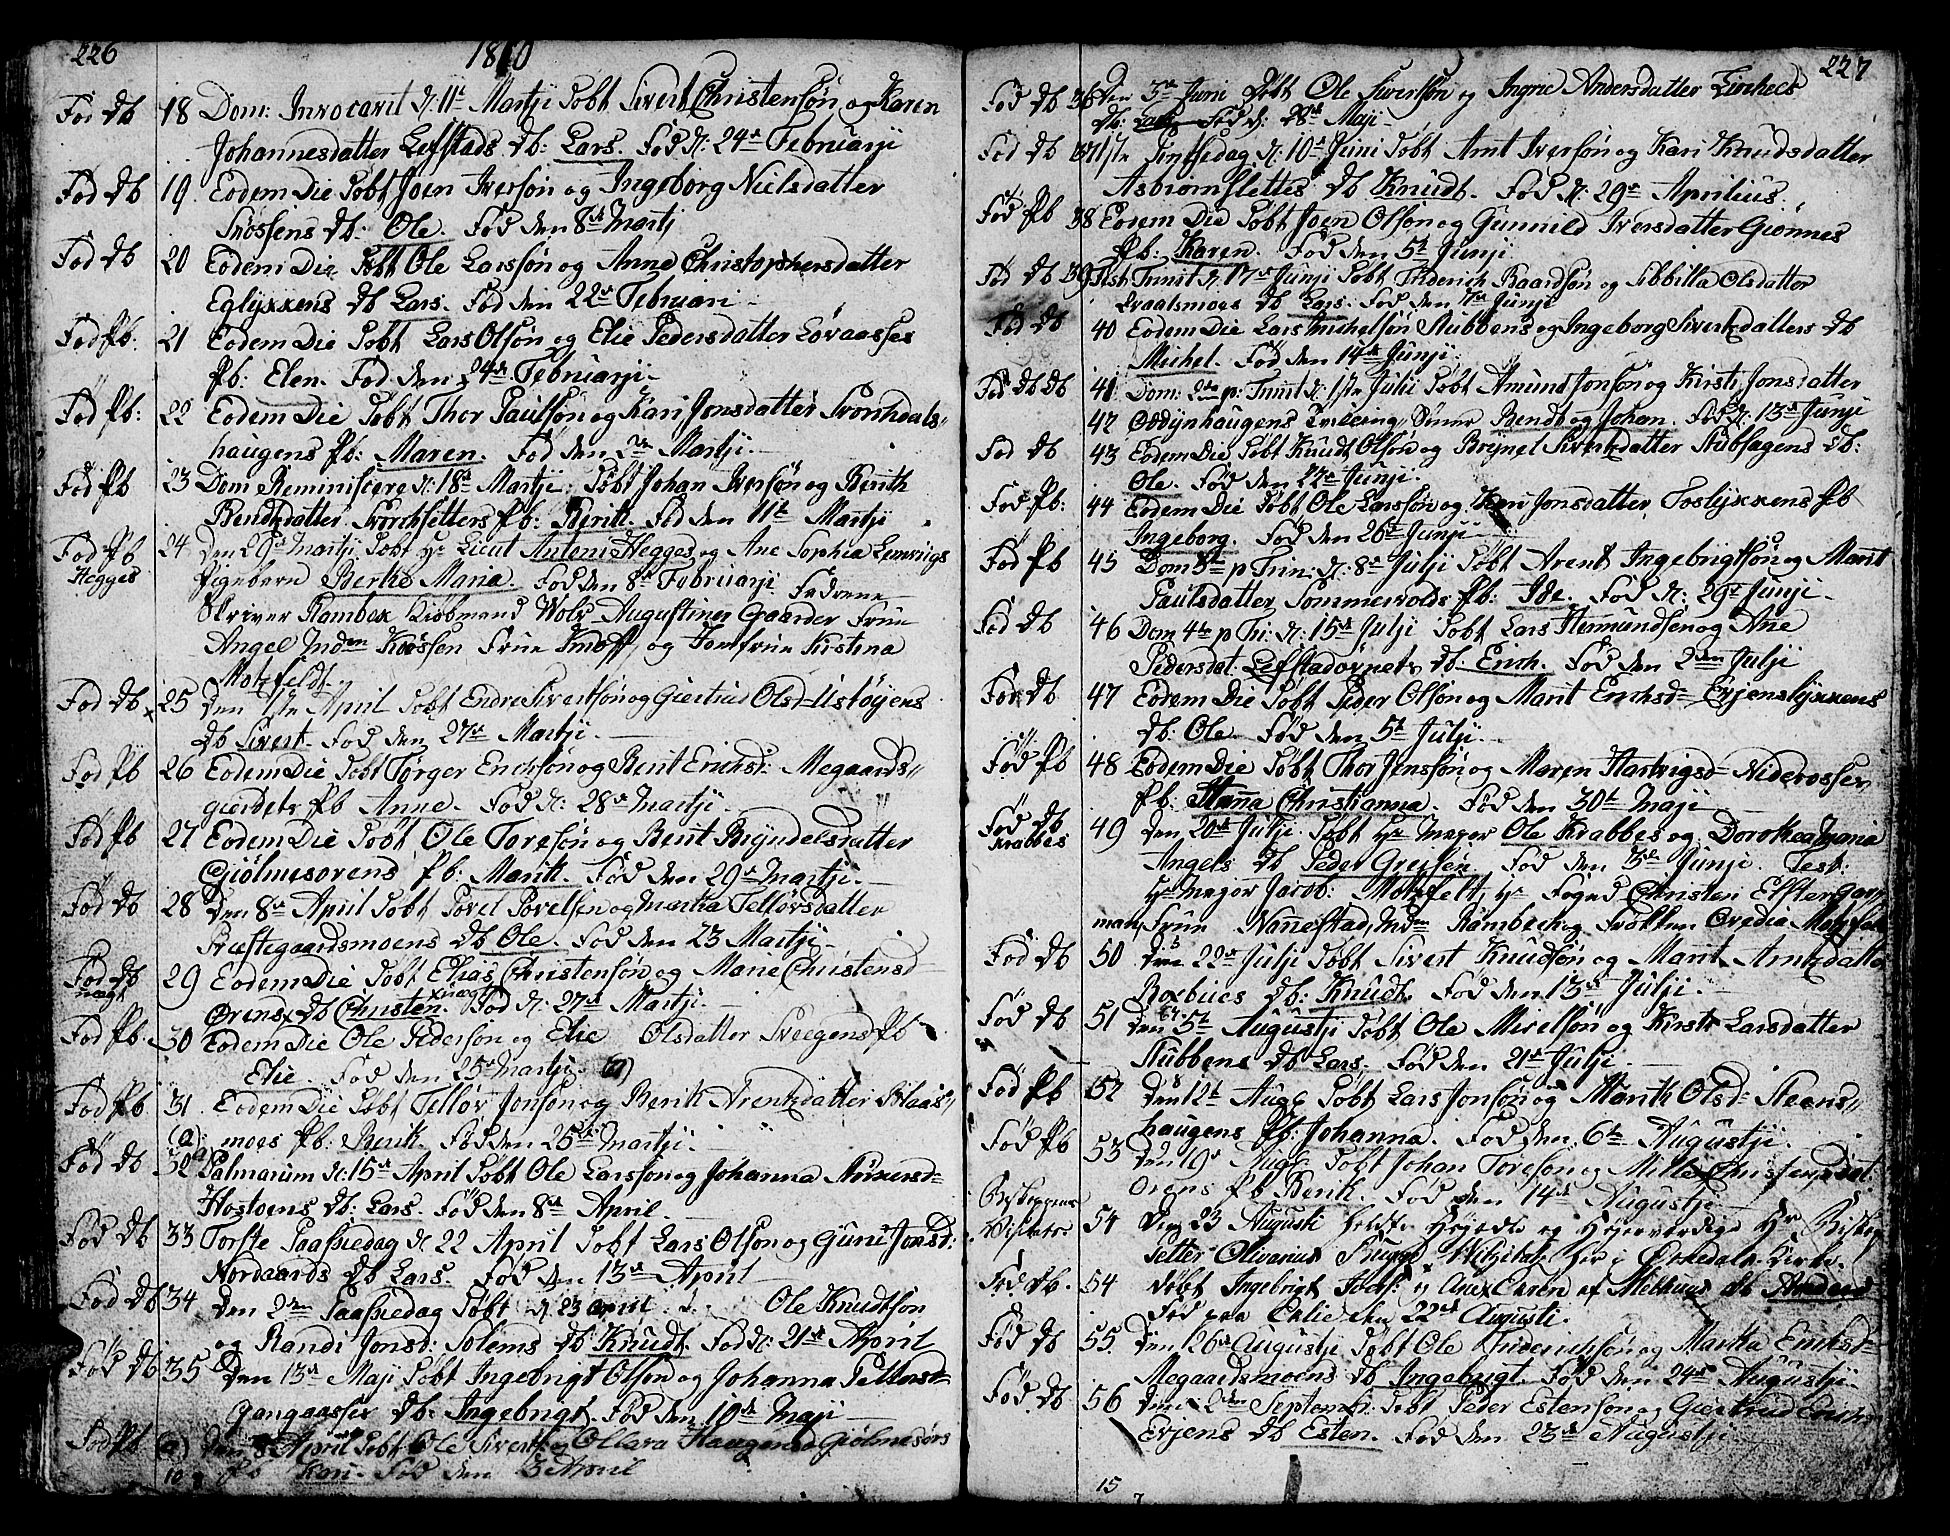 226
1810
Fød Db 18 Dom: Invocavit d: 11te Martji Døbt Sivert Christensøn og Karen
Johannesdatter Lefstads Db: Lars. Fød d: 24de Februarji
Fød Db 19 Eodem Die Døbt Joen Iversøn og Ingeborg Nielsdatter
Db: Ole. Fød den 8de Martj
Fød Db 20 Eodem Die Døbt Ole Larssøn og Anne Christophersdatter
Eglykkens Db Lars. Fød den 22de Februari
Fød Pb: 21 Eodem Die Døbt Lars Olsøn og Elie Pedersdatter Løvaasses
Pb: Elen. Fød den 24de Februarji
Fød Pb: 22 Eodem Die Døbt Thor Paulsøn og Kari Jonsdatter Svorkdals-
haugens Pb: Maren. Fød den 2den Martji
Fød Pb 23 Dom Reminiscere d: 18de Martji Døbt Johan Iversøn og Berith
Bendtsdatter Svorksetters Pb: Berit. Fød den 11te Martji
Fød Pb Hegges 24 Den 29de Martji Døbt Hr Lieut Anton Hegges og Ane Sophia Lemvigs
Pigebarn Berthe Maria. Fød den 8de Februarji Fadderne
Skriver Rambek Kiøbmand Wold Augustinus Gaarder Frue
Angel Madm Krossen Frue Knoff og Jomfrue Kistina
Motzfeldt.
Fød Db 25 Den 1ste April Døbt Endre Sivertsøn og Giertrud Olsd Ustøyens
Db Sivert. Fød den 27de Martji
Fød Pb 26 Eodem Die Døbt Torger Erichsøn og Berit Erichsd: Megaards-
gierdets Pb Anne. Fød d: 28de Martji
Fød Pb 27 Eodem Die Døbt Ole Toresøn og Berit Bryndelsdatter
Giølmesørens Pb: Marit. Fød den 29de Martji
Fød Db 28 Den 8de April Døbt Povel Povelsen og Martha Tellofsdatter
Præstegaardsmoens Db Ole. Fød den 23 Martji
Fød Db uægt 29 Eodem Die Døbt Elias Christensøn og Marie Christensd
Ørens Db Christen uægt Fød d: 27de Martji
Fød Pb. 30 Eodem Die Ole Pedersøn og Elie Olsdatter Sveegens Pb
Elie. Fød den 25de Martji (a)
Fød Pb 31 Eodem Die Døbt Tellov Jonsøn og Berit Arentzdatter Solaas-
moes Pb: Berit. Fød den 25de Martji
Fød Db 32 Palmarum d: 15de April Døbt Ole Larssøn og Johanna
Hostoens Db: Lars. Fød den 8de April
Fød Db 33 Første Paaskedag d. 22 April Døbt Lars Olsøn og Guni Jonsd:
Nordaards Db Lars. Fød den 13de April
Fød Db 34 Den 2den Paaskedag Døbt d 23 April Ole Knudtsøn
og Randi Jonsd: Solems Db Knudt. Fød d: 21de April
Fød Db 35 Den 13de Maji Døbt Ingebrigt Olsøn og Johanna
Gangaasses Db: Ingebrigt. Fød den 10de Maji
Fød Pb (a) Den 8 April Døbt Ole Sivertz og Ollava Haagensd Giølmesørs
Pb Kari. Fød den 3 April
227
Fød Db 36 Den 3de Juni Døbt Ole Sivertsøn og Ingrie Andersdatter
Db: Fød d: 28de Maji
Fød Db 37 1ste Pintsedag d: 10de Juni Døbt Arnt Iversøn og Kari Knudsdatter
Asbiørnslettes Db Knudt. Fød d: 29de Aprilius
Fød Pb 38 Eodem Die Døbt Joen Olsøn og Gunnild Iversdatter Giønnes
Pb: Karen. Fød den 5te Junji
Fød Db 39 Fest Trinit d: 17de Junji Døbt Friderich Baardsøn og Sibbilla Olsdatter
Evaalsmoes Db Lars. Fød den Junji
Fød Db 40 Eodem Die Lars Michelsøn Stubbens og Ingeborg Sivertzdatters Db
Michel. Fød den 14de Junji
Fød Db Db 41 Dom: 2den p: Trinit d: 1ste Julii Døbt Amund Jonsøn og Kirsti Jonsdatter
42 Oddynhaugens Tvilling Sønner Bendt og Johan. Fød d: 13de Junji
Fød Db 43 Eodem Die Døbt Knudt Olsøn og Brynel Sivertzdatter Stubhagens Db:
Ole. Fød den 22de Junji
Fød Pb: 44 Eodem Die Døbt Ole Larssøn og Kari Jonsdatter Foslykkens Pb
Ingeborg. Fød den 26de Junji
Fød Pb 45 Dom p Trin: d: 8de Julji Døbt Arent Ingebrigtsøn og Marit
Paulsdatter Sommervolds Pb: Ide. Fød d: 29de Junji
Fød Db 46 Dom 4de p Tri: d: 15de Julji Døbt Lars Hermundsen og Ane
Pedersdat. Lefstadørnets Db. Erich. Fød den 2den Julji
Fød Db 47 Eodem Die Døbt Peder Olsøn og Marit Erichsd Evjenslykkens
Db: Ole. Fød den 5te Julji
Fød Pb 48 Eodem Die Døbt Thor Jenssøn og Maren Hartvigsd Niderosses
Pb: Hanna Christianna. Fød den 30te Maji
Fød Db Krabbes 49 Den 20de Julji Døbt Hr Major Ole Krabbes og Dorothea Maria
Angels Db Peder Greffen. Fød den Junji. Test:
Hr Major Jacob: Motzfelt, Hr Foged Christen Elster
man, Frue Nannestad, Mdm Rambech og Frøken Ovedia Motzfelt
Fød Db 50 Den 22de Julji Døbt Sivert Knudsøn og Marit Arntzdatter
Roxbues Db: Knudt. Fød den 13de Julji
Fød Db 51 Den 5te Augustji Døbt Ole Mikelsøn og Kirsti Larsdatter
Stubbens Db Lars. Fød den 21de Julji
Fød Pb 52 Den 12te Aug: Døbt Lars Jonsøn og Marit Olsd: Steens-
haugens Pb: Johanna. Fød den 6te Augustji
Fød Pb 53 Den 19de Aug: Døbt Johan Toresøn og Mille Christensdat:
Ørens Pb Berit. Fød den 14de Augustji
Bischoppens Visitats 54 Den 23 Augusti holdte Høyædle og Høyærværdige Hr Biskop
Petter Olivarius Bugge Visitatz her i Ørkedals Kirke.
Fød Db. 54 Døbt Ingebrigt og Ane af Melhuus Db
Fød paa Evlie den 22de Augusti.
Fød Db 55. Den 26de Augustji Døbt Ole Friderichsøn og Martha Erichsd
Megaardsmoens Db Ingebrigt. Fød den 24de Augustji
Fød Db 56 Den 2den Septembr: Døbt Peder Estensøn og Giertrud
Evjens Db Esten. Fød den 23de Augustji
15